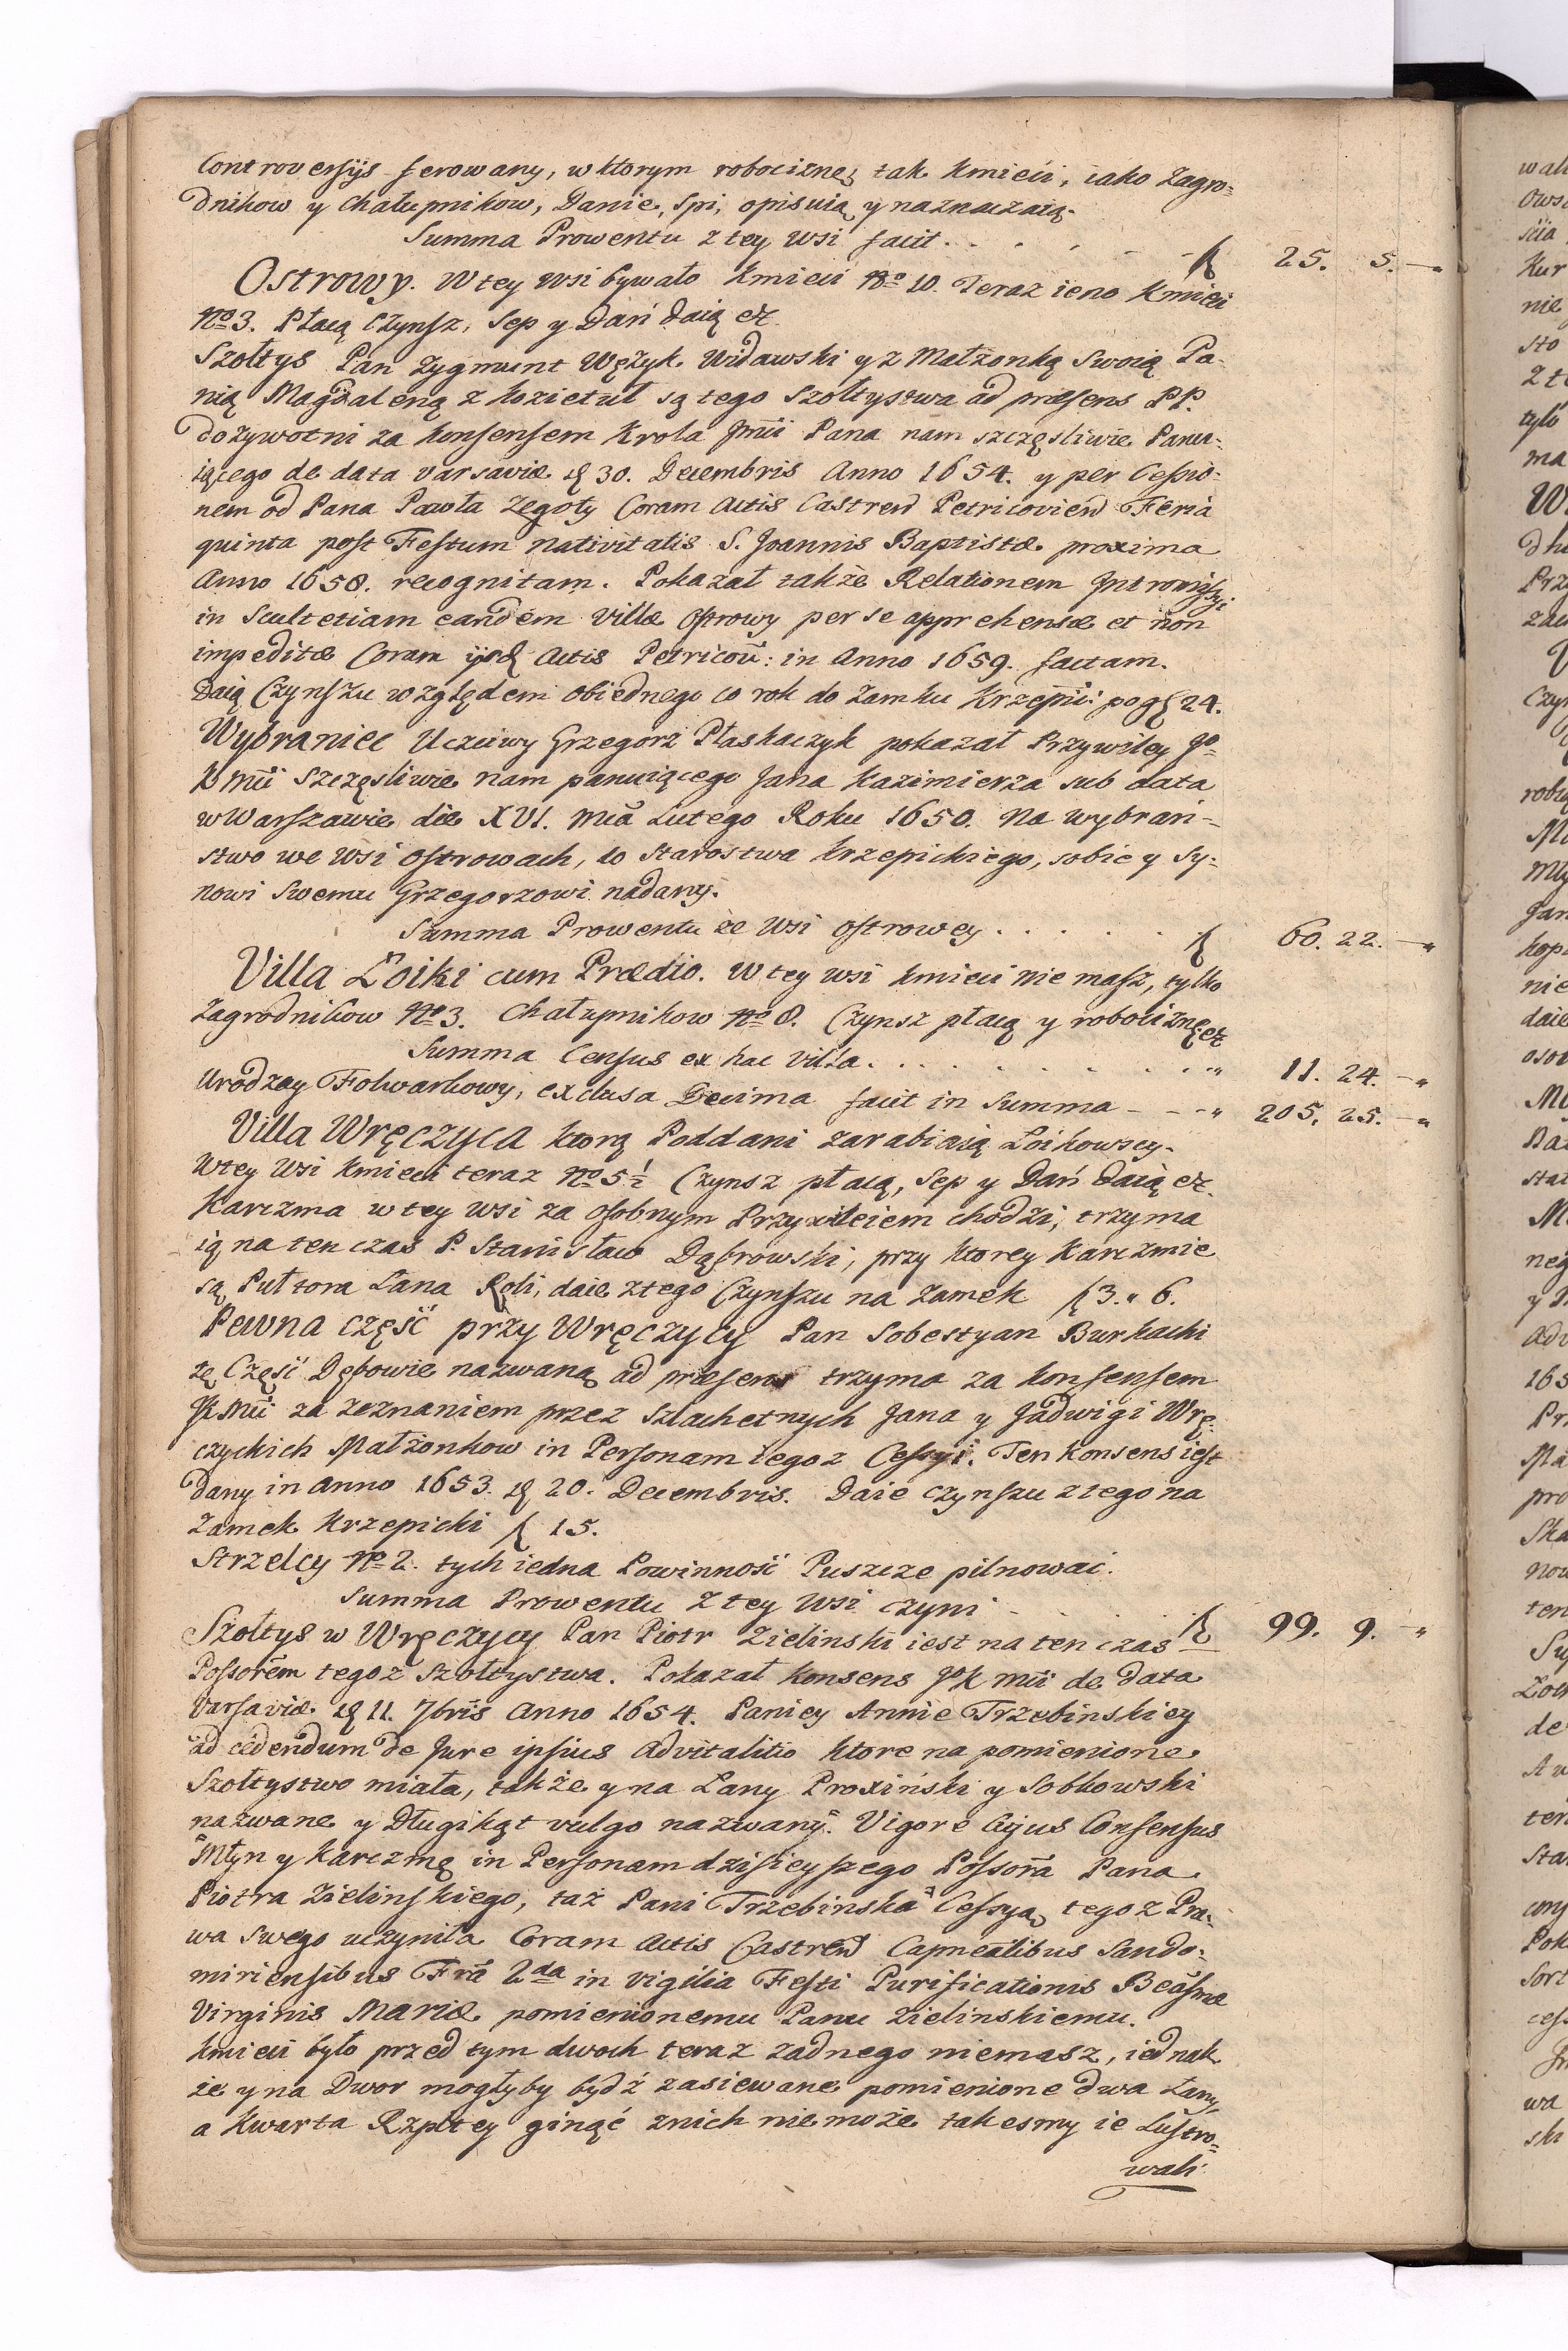 Controversÿs ferowany, w ktorym robociznę tak Kmieci, iako Zagro-
dnikow y Chałupnikow, Danie, Spi, opisuią y naznaczaią.
Summa Prowentu z tey Wsi facit . . . . . 25. 5. —
Ostrowy. W tey Wsi bywało Kmieci No 10. Teraz ieno Kmieci
No 3. Płacą Czynsz, Sep y Dań daią etc.
Szołtys Pan Zygmunt Wężyk Widawski y z Małżonką Swoią Pa-
nią Magdaleną z Kozietuł są tego Szołtystwa ad præsens PP.
dożywotni za Konsensem Krola Jmći Pana nam szczęsliwie Panu-
iącego de data Varsaviæ 30. Decembris Anno 1654. y per Cessio-
nem od Pana Pawła Zegoty Coram Actis Castren Petricovien Feria
quinta post Festum Nativitatis S. Joannis Baptistæ proxima
Anno 1658. recognitam. Pokazał także Relationem Intromissyi
in Scultetiam eandem Villæ Ostrowy per se apprehensæ et non
impeditæ Coram ijsd Actis Petricov: in Anno 1659. factam.
Daią Czynszu względem obiednego co rok do Zamku Krzepic: po 24.
Wybraniec Uczciwy Grzegorz Płaskaczyk pokazał Przywiley Jo-
K Mći Szczęsliwie nam panuiącego Jana Kazimierza sub data
w Warszawie die XVI. Mca Lutego Roku 1650. Na wybrań-
stwo we Wsi Ostrowach, do Starostwa Krzepickiego, sobie y Sy-
nowi Swemu Grzegorzowi nadany.
Summa Prowentu ze Wsi Ostrowey . . . . . . 60. 22. —
Villa Łoiki cum Prædio. W tey wsi Kmieci nie masz, tylko
Zagrodnikow No 3. Chałupnikow No 8. Czynsz płacą y robociznę etc
Summa Census ex hac Villa . . . . . . . . " 11. 24. — "
Urodzay Folwarkowy, exclusa Decima facit in Summa - - - " 205. 25. — "
Villa Wręczyca ktorą Poddani zarabiaią Łoikowscy.
W tey Wsi Kmieci teraz No 5½ Czynsz płacą, Sep y Dań daią etc.
Karczma w tey Wsi za osobnym Przywileiem chodzi, trzyma
ią na ten czas P. Stanisław Dąbrowski, przy ktorey Karczmie
są Pułtora Łana Roli, daie z tego Czynszu na Zamek 3. " 6.
Pewna część przy Wręczycy Pan Sobestyan Burkacki
tę Część Dębowie nazwaną ad præsens trzyma za Konsensem
JK Mći za zeznaniem przez Szlachetnych Jana y Jadwigi Wrę-
czyckich Małżonkow in Personam iegoz Cessyi. Ten Konsens iest
Dany in Anno 1653. 20. Decembris. Daie czynszu z tego na
Zamek Krzepicki 15.
Strzelcy No 2. tych iedna Powinność Puszcze pilnować.
Summa Prowentu z tey Wsi czyni . . . . . 99. 9. — "
Szołtys w Wręczycy Pan Piotr Zielinski iest na ten czas
Possorem tegoz Szołtystwa. Pokazał Konsens JoK Mći de data
Varsaviæ 11. 7bris Anno 1654. Paniey Annie Trzebinskiey
ad cedendum de Jure ipsius advitalitio ktore na pomienione
Szołtystwo miała, także y na Łany Proxiński y Sobkowski
nazwane y Długikąt vulgo nazwany. Vigore Cujus Consensus
Młyn y Karczmę in Personam dzisieyszego Possora Pana
Piotra Zielinskiego, taż Pani Trzebinska Cessyą tego z Pra-
wa Swego uczyniła Coram Actis Castren Capnealibus Sando-
miriensibus Fra 2da in Vigilia Festi Purificationis Beasmæ
Virginis Mariæ pomienionemu Panu Zielinskiemu.
Kmieci było przed tym dwoch teraz żadnego niemasz, iednak
że y na Dwor mogłyby bydź zasiewane pomienione dwa Łany,
a Kwarta Rzpltey ginąć z nich nie może takesmy ie Lustro-
wali